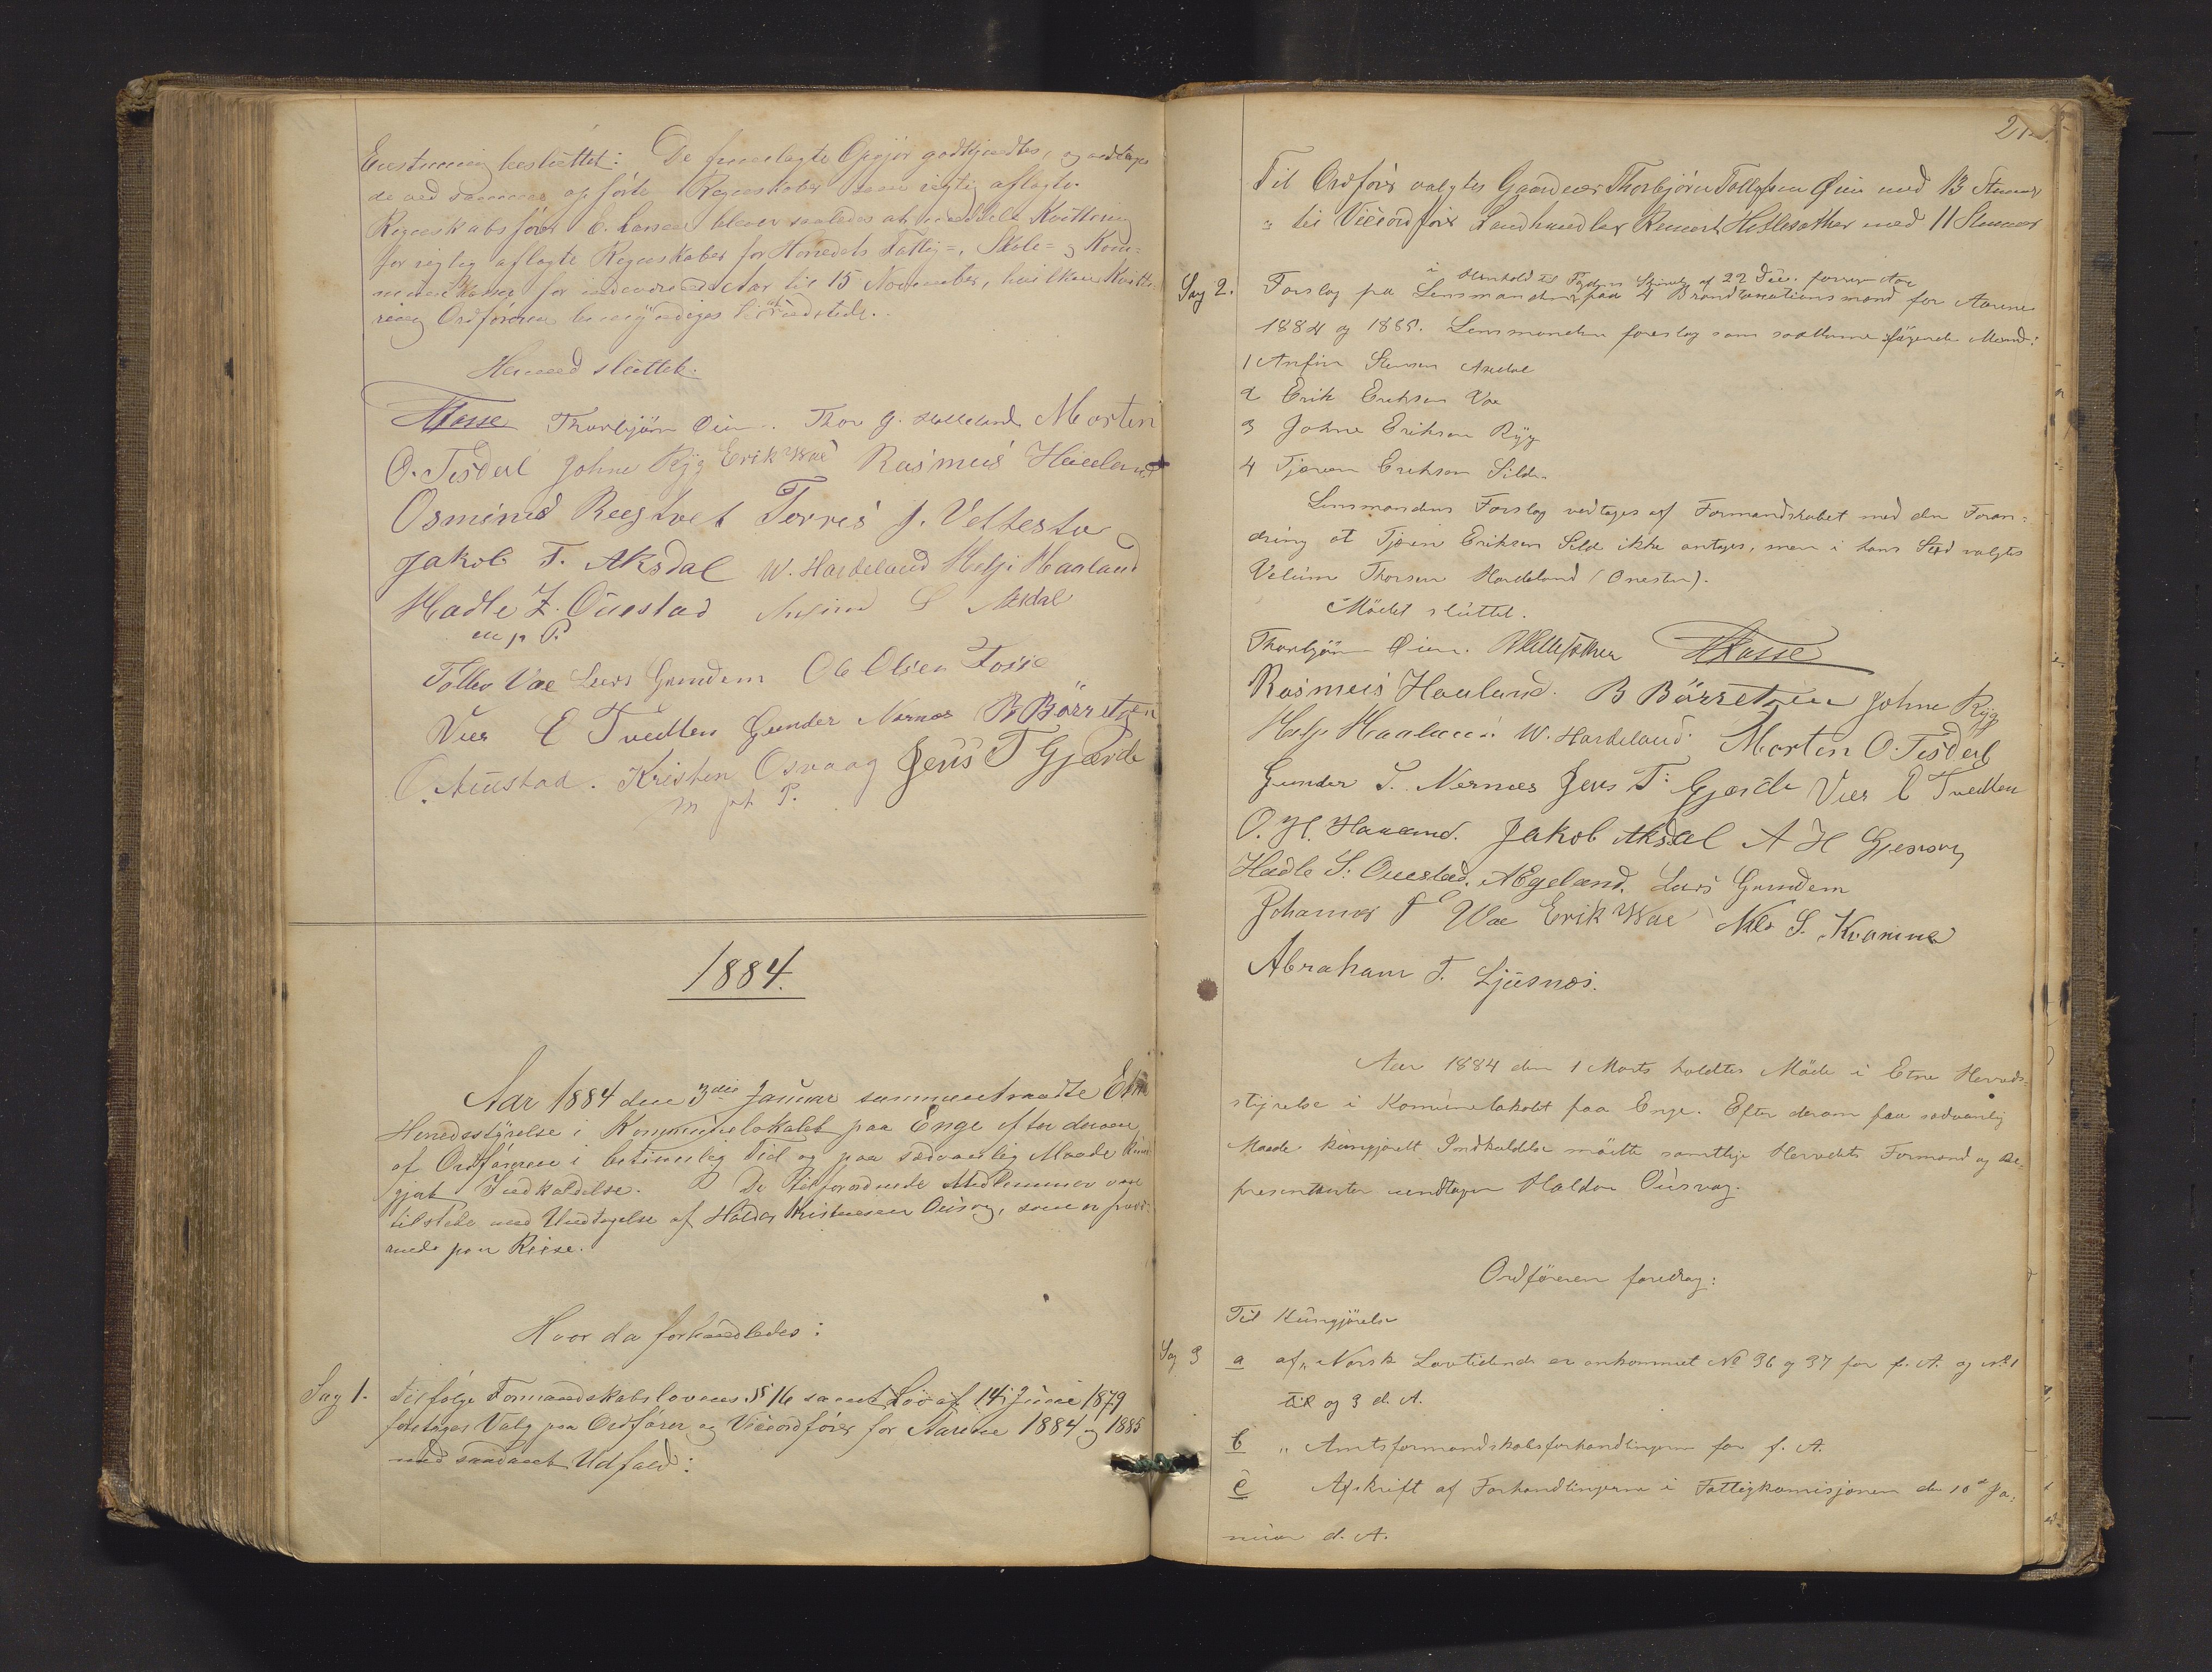 Enstemmig besluttet: De fremlagte Opgjör godkjendtes, og vedtages
de ved samme opförte Regnskaber som rigtig aflagte.
Regnskabsförer O. Larsen bliver saaledes at meddele Kvittring
for rigtig aflagte Regnskaber for Herredets Fattig=, Skole= og Kom=
munekasse for indeværende Aar til 15 November, hvilken Kvitte-
ring Ordföreren bemyndiges til at udstede.
Hermed sluttet.
Thorbjörn Öien. Thor G. Morten
O. Tesdal Johne Ryg Erik Vae Rasmus Haaland
Osmund Torres J. Vettestø
Jakob T. Aksdal W. Hardeland Helje Haaland
Hadle Ouestad S Aksdal
m p P.
Tollev Vae Lars Grindem Ole Olsen Fosse
Vier E Tvedten Gunder Nernæs B Börretzen
O. Austad. Kristen Osvaag Jens T Gjærde
m p P.
1884.
Aar 1884 den 3die Januar sammentraadte Etne
Herredsstyrelse i Kommunelokalet paa Enge efter derom
af Ordföreren i betimelig Tid og paa sædvanlig Maade kund
gjort Indkaldelse. De tilforordnede Medlemmer vare
tilstede med Undtagelse af Haldor Kristensen Ousvag, som er fravæ-
rende paa Reise.
Hvor da forhandledes:
Sag 1. Tilfölge Formandskabslovens § 16 samt Lov af 14 Juni 1879
foretages Valg paa Ordförer og Viceordförer for Aarene 1884 og 1885
med saadant Udfald:
21
Til Ordförer valgtes Gaardeier Thorbjörn Tollefsen Öien med 13 Stemmer
" til Viceordförer Landhandler Reinert Hetlesæther med 11 Stemmer
i Henhold til Fogdens Skrivelse af 22 Dec. forrige Aar
Sag 2. Forslag fra Lensmanden paa 4 Brandtaxationsmænd for Aarene
1884 og 1885. Lensmanden foreslog som saadanne fölgende Mænd:
1 Anfin Stensen Axdal
2 Erik Eriksen Vae
3 Johne Eriksen Ryg
4 Tjeran Eriksen Silde
Lensmandens Forslag vedtages af Formandskabet med den Foran=
dring at Tjeran Eriksen Silde ikke antages, men i hans Sted valgtes
Velum Thorsen Hardeland (Onesten).
Mödet sluttet.
Thorbjörn Öien. RHetlesæther
Rasmus Haaland. B Börretzen Johne Ryg
Helje Haaland W. Hardeland. Morten O. Tesdal
Gunder S. Nernæs Jens T. Gjærde Vier E Tvedten
O. H. Haaland. Jakob Aksdal A H Gjersvig
Hadle S. Ouestad. AEgeland. Lars Grindem
Johannes T Vae Erik Vae Nils S. Kvamme
Abraham T. Ljusnæs.
Aar 1884 den 1 Marts holdtes Möde i Etne Herreds-
styrelse i Komunelokalet paa Enge. Efter derom paa sædvanlig
Maade kungjorett Indkaldelse mödte samtlige Herredets Formænd og Re-
presentanter undtagen Haldor Ousvag.
Ordföreren foredrog:
Til Kungjörelse
Sag 3 a af „Norsk Lovtidende er ankommet No 36 og 37 for f. A. og No 1
til og 3 d. A.
b " Amtsformandskabsforhandlingerne for f. A.
c Afskrift af Forhandlingerne i Fattigkomisjonen den 10de Ja-
nuar d. A.